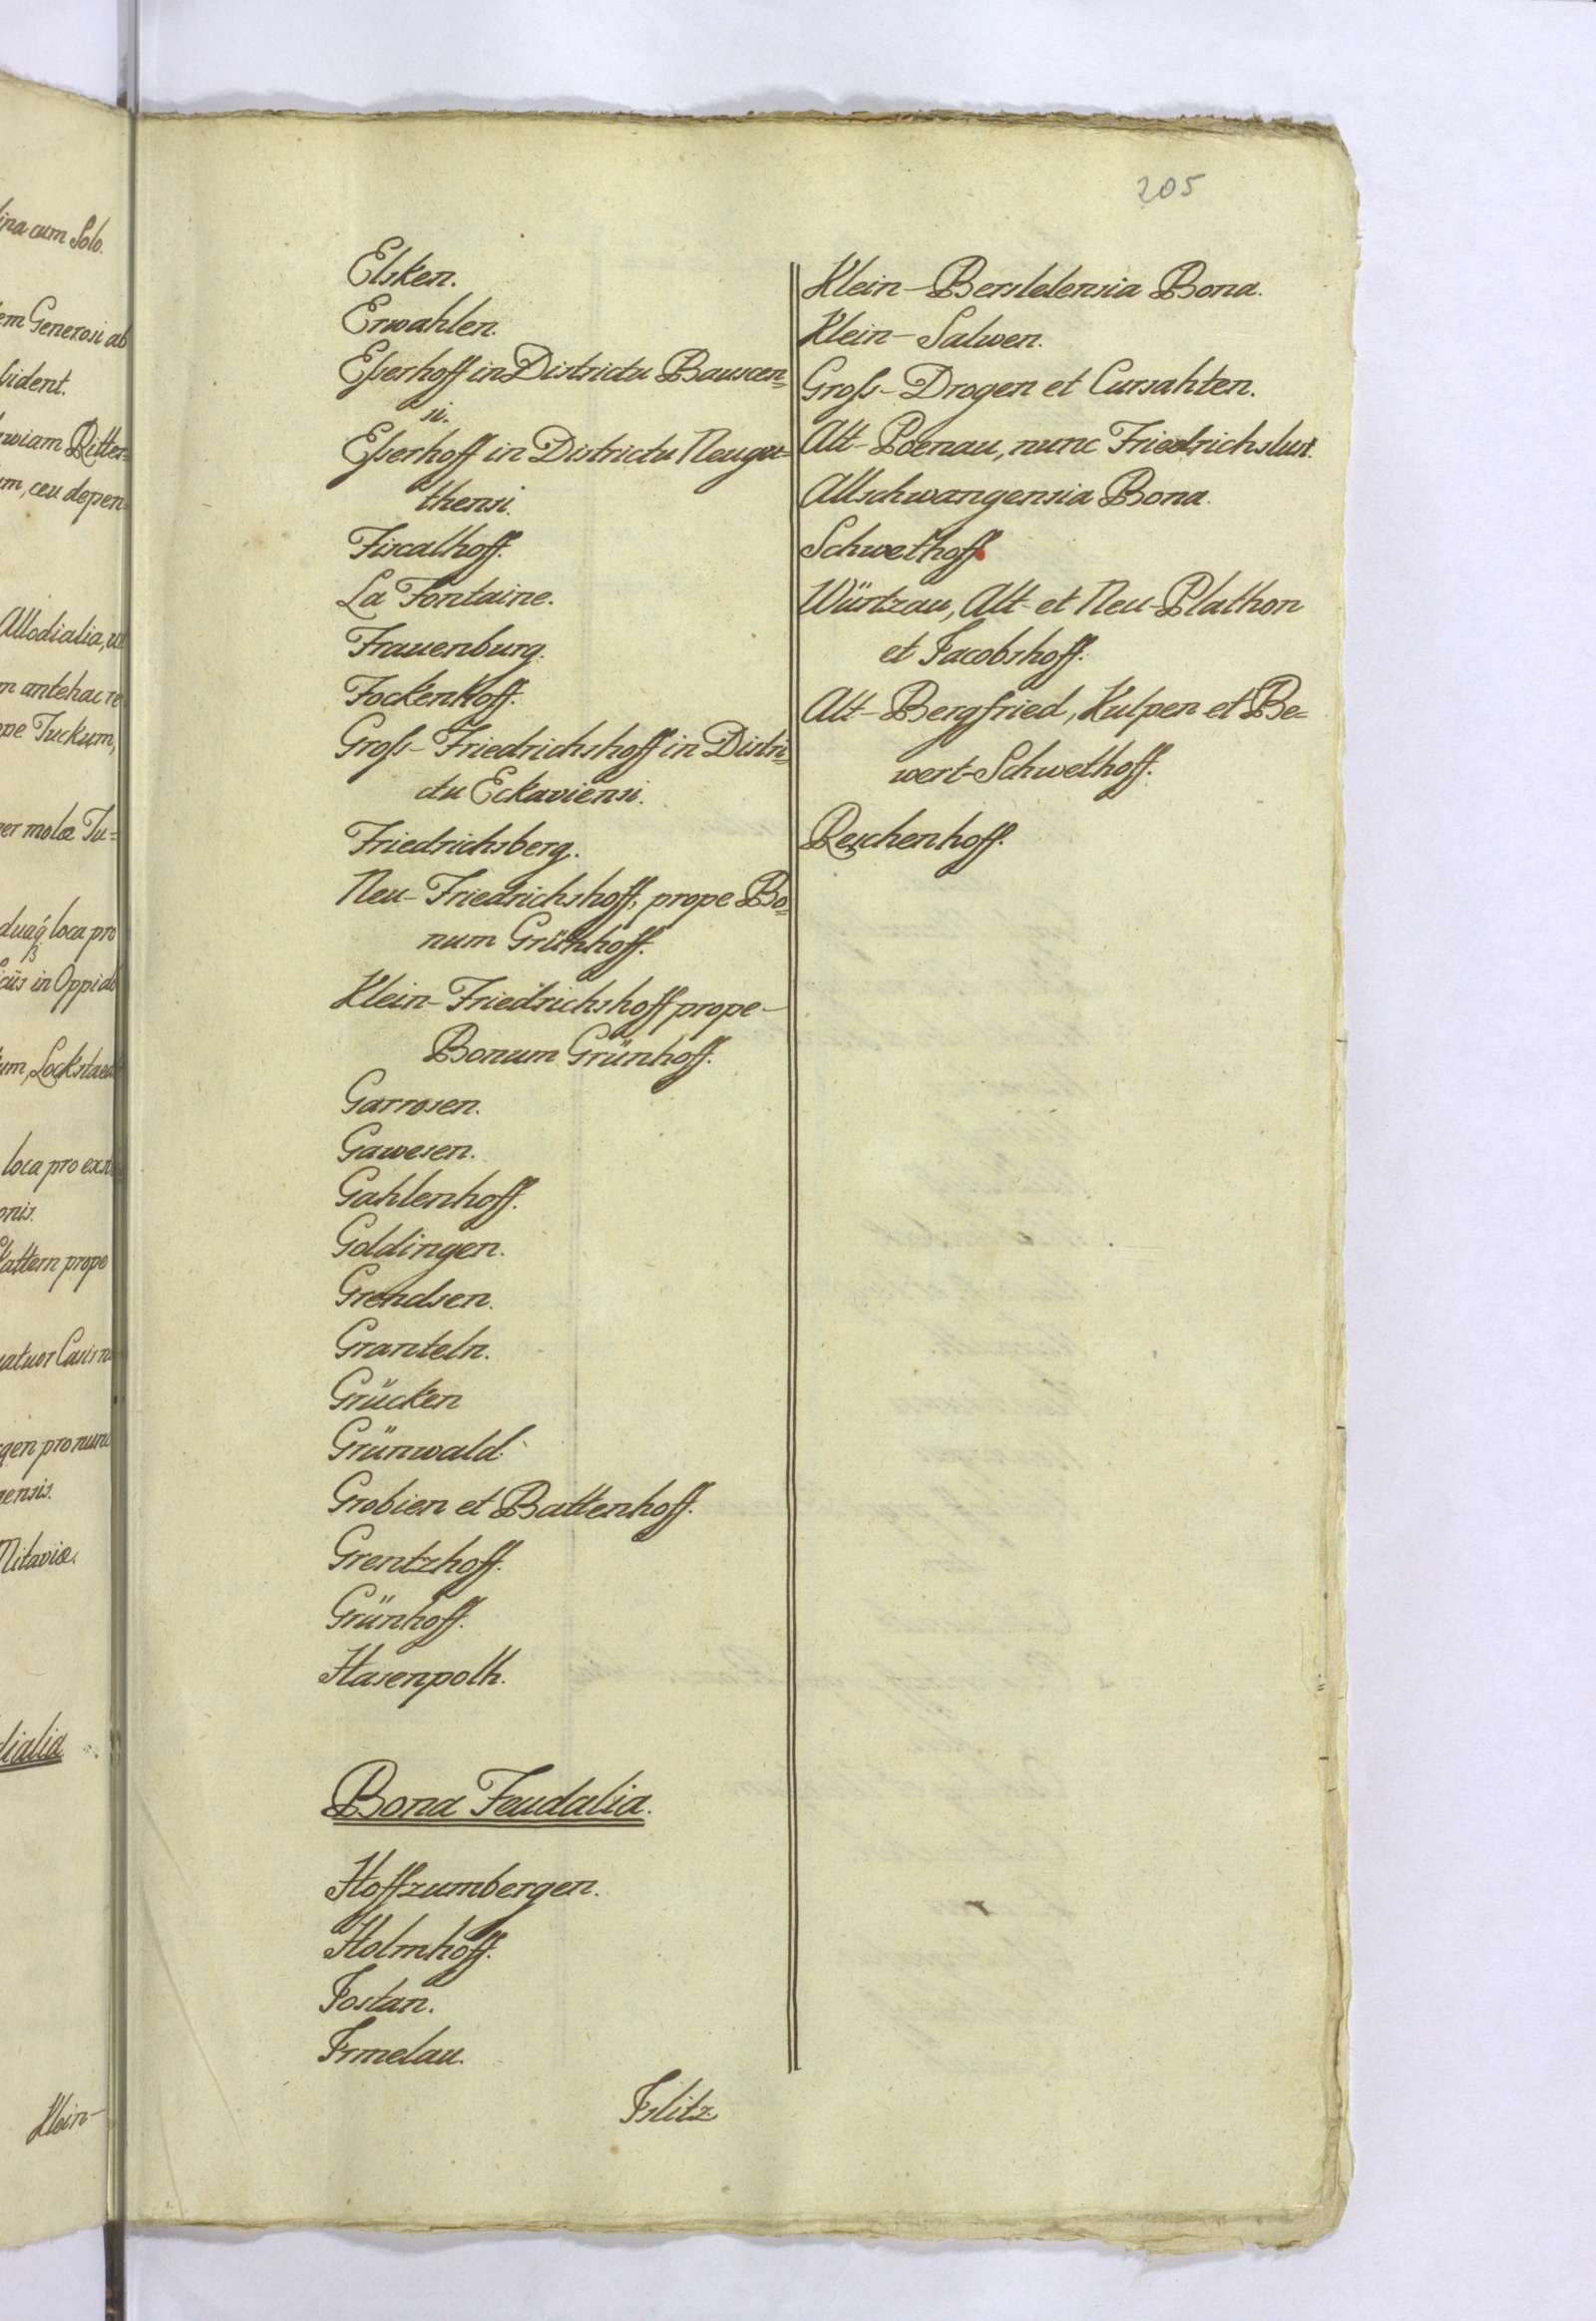 205
Elsken.
Erwahlen.
Eßerhoff in Districtu Bauscen=
si.
Eßerhoff in Districtu Neugu=
thensi.
Fiscalhoff.
La Fontaine.
Frauenburg.
Fockenhoff.
Groß-Friedrichshoff in Distri=
ctu Eckaviensi.
Friedrichsberg.
Neu-Friedrichshoff, prope Bo=
num Grünhoff.
Klein-Friedrichshoff prope
Bonum Grünhoff.
Garrosen.
Gawesen.
Gahlenhoff.
Goldingen.
Grendsen.
Granteln.
Grücken
Grünwald.
Grobien et Battenhoff.
Grentzhoff.
Grünhoff.
Hasenpoth.
Bona Feudalia.
Hoffzumbergen.
Holmhoff.
Jostan.
Irmelau.
Islitz
Klein-Berstelensia Bona.
Klein-Salwen.
Groß-Drogen et Cursahten.
Alt-Poenau, nunc Friedrichslust.
Allschwangensia Bona.
Schwethoff
Würtzau, Alt- et Neu-Plathon
et Jacobshoff.
Alt-Bergfried, Kulpen et Be=
wert-Schwethoff.
Reschenhoff.
cum Solo.
Generosi ab
Ritter=
depen=
Allodialia,
antehac
Tuckum,
molæ Tu=
loca pro
in Oppido
loca pro
prope
pro nunc
Mitaviæ.
Klein-